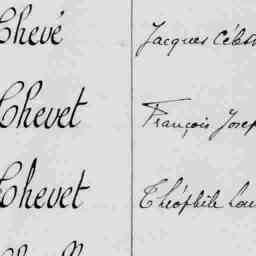 Chevé Jacques Célest
Chevet François Josep
Chevet Théophile Lou